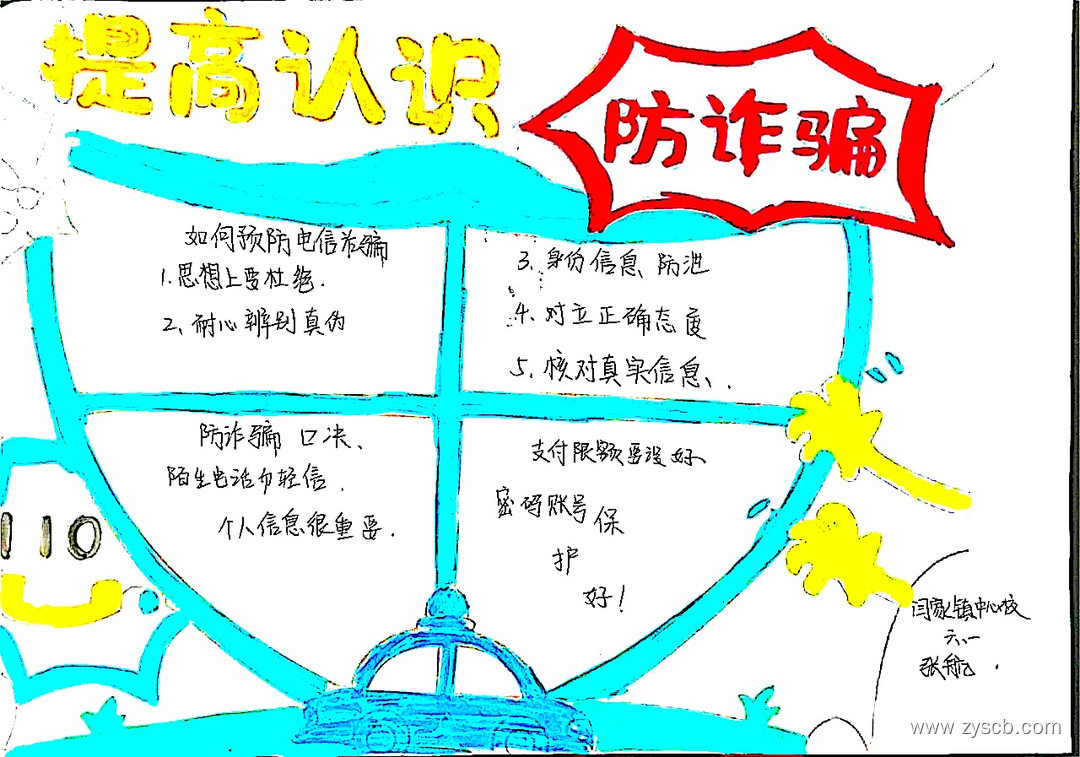 提高认识
防诈骗
如何预防电信诈骗
1.思想上要杜绝.
2、耐心辨别真伪
3、身份信息防泄
4、对立正确态度
5、核对真实信息、.
防诈骗口决、
陌生电话勿轻信.
个人信息很重要.
支付限额要设好、
密码账号保
护
好!
110
闫家镇中心校
六.一
张航.
www.zyscb.com